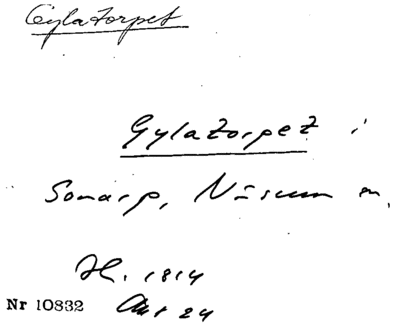 Gylatorpet
Gylatorpet i
Sonarp, N-sum m.
Hl. 1814
Nr 10832